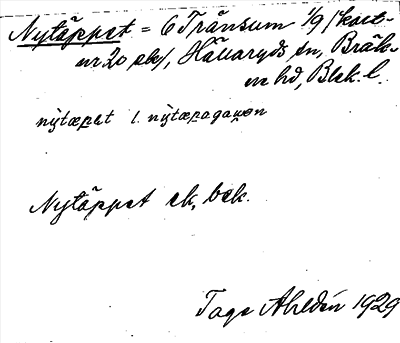 Nytäppet = 6 Tränsum 1/9 /kart-
nr 20 sk/, Hällaryds sn, Bräk-
ne hd, Blek. l.
nỳtæpet l. nỳtæpagaɷən
Nytäppet ek, bek.
Tage Ahldén 1929